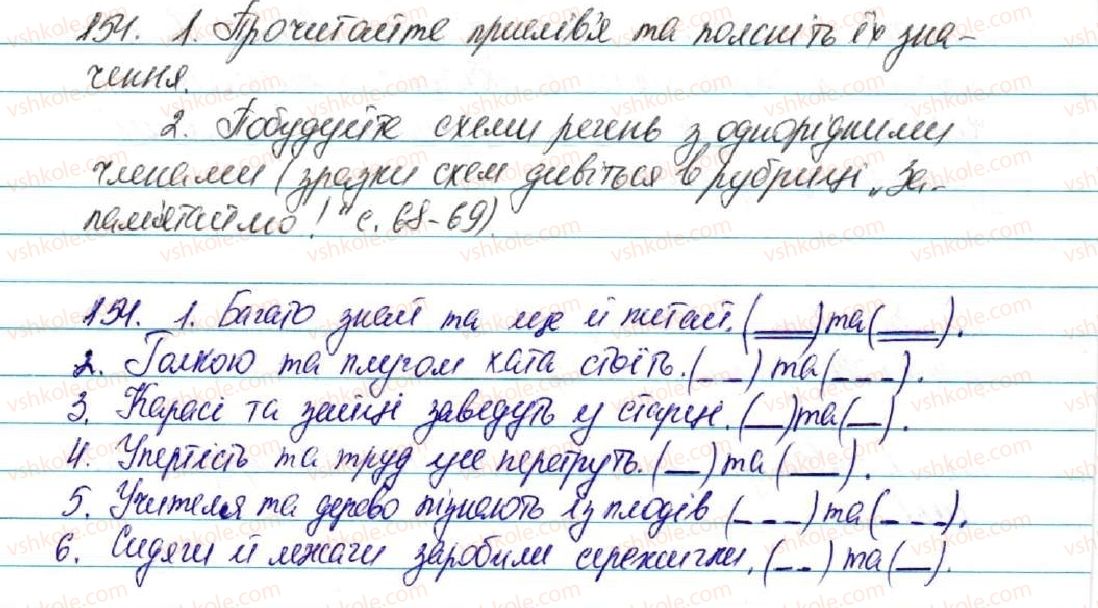 154. 1. Прочитайте прислів'я та поясніть їх зна-
чення.
2. Побудуйте схеми речень з однорідними
членами (зразки схем дивіться в рубриці „За-
пам'ятаймо!" с. 68-69).
154. 1. Багато знай та ще й питай. (___) та (___).
2. Голкою та плугом хата стоїть. (_ _ _) та (_ _ _).
3. Карасі та зайці заведуть у старці. (__) та (__).
4. Упертість та труд усе перетруть. (__) та (___).
5. Учителя та дерево пізнають із плодів (_ _ _) та (_ _ _).
6. Сидячи й лежачи заробили сережички. (_ _) та (__).